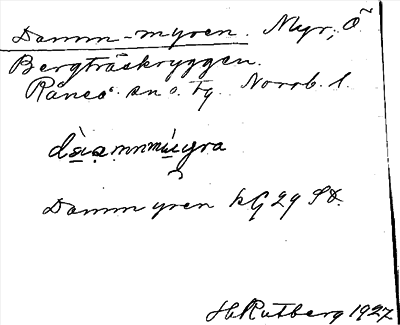 Damm-myren. Myr, Ö
Bergträskryggen.
Råneå sn o. Tg Norrb. l.
Dammyren kG 29 SV.
H Rutberg 1927